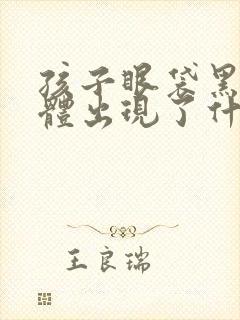 孩子眼袋黑
體出現了什
王良瑞